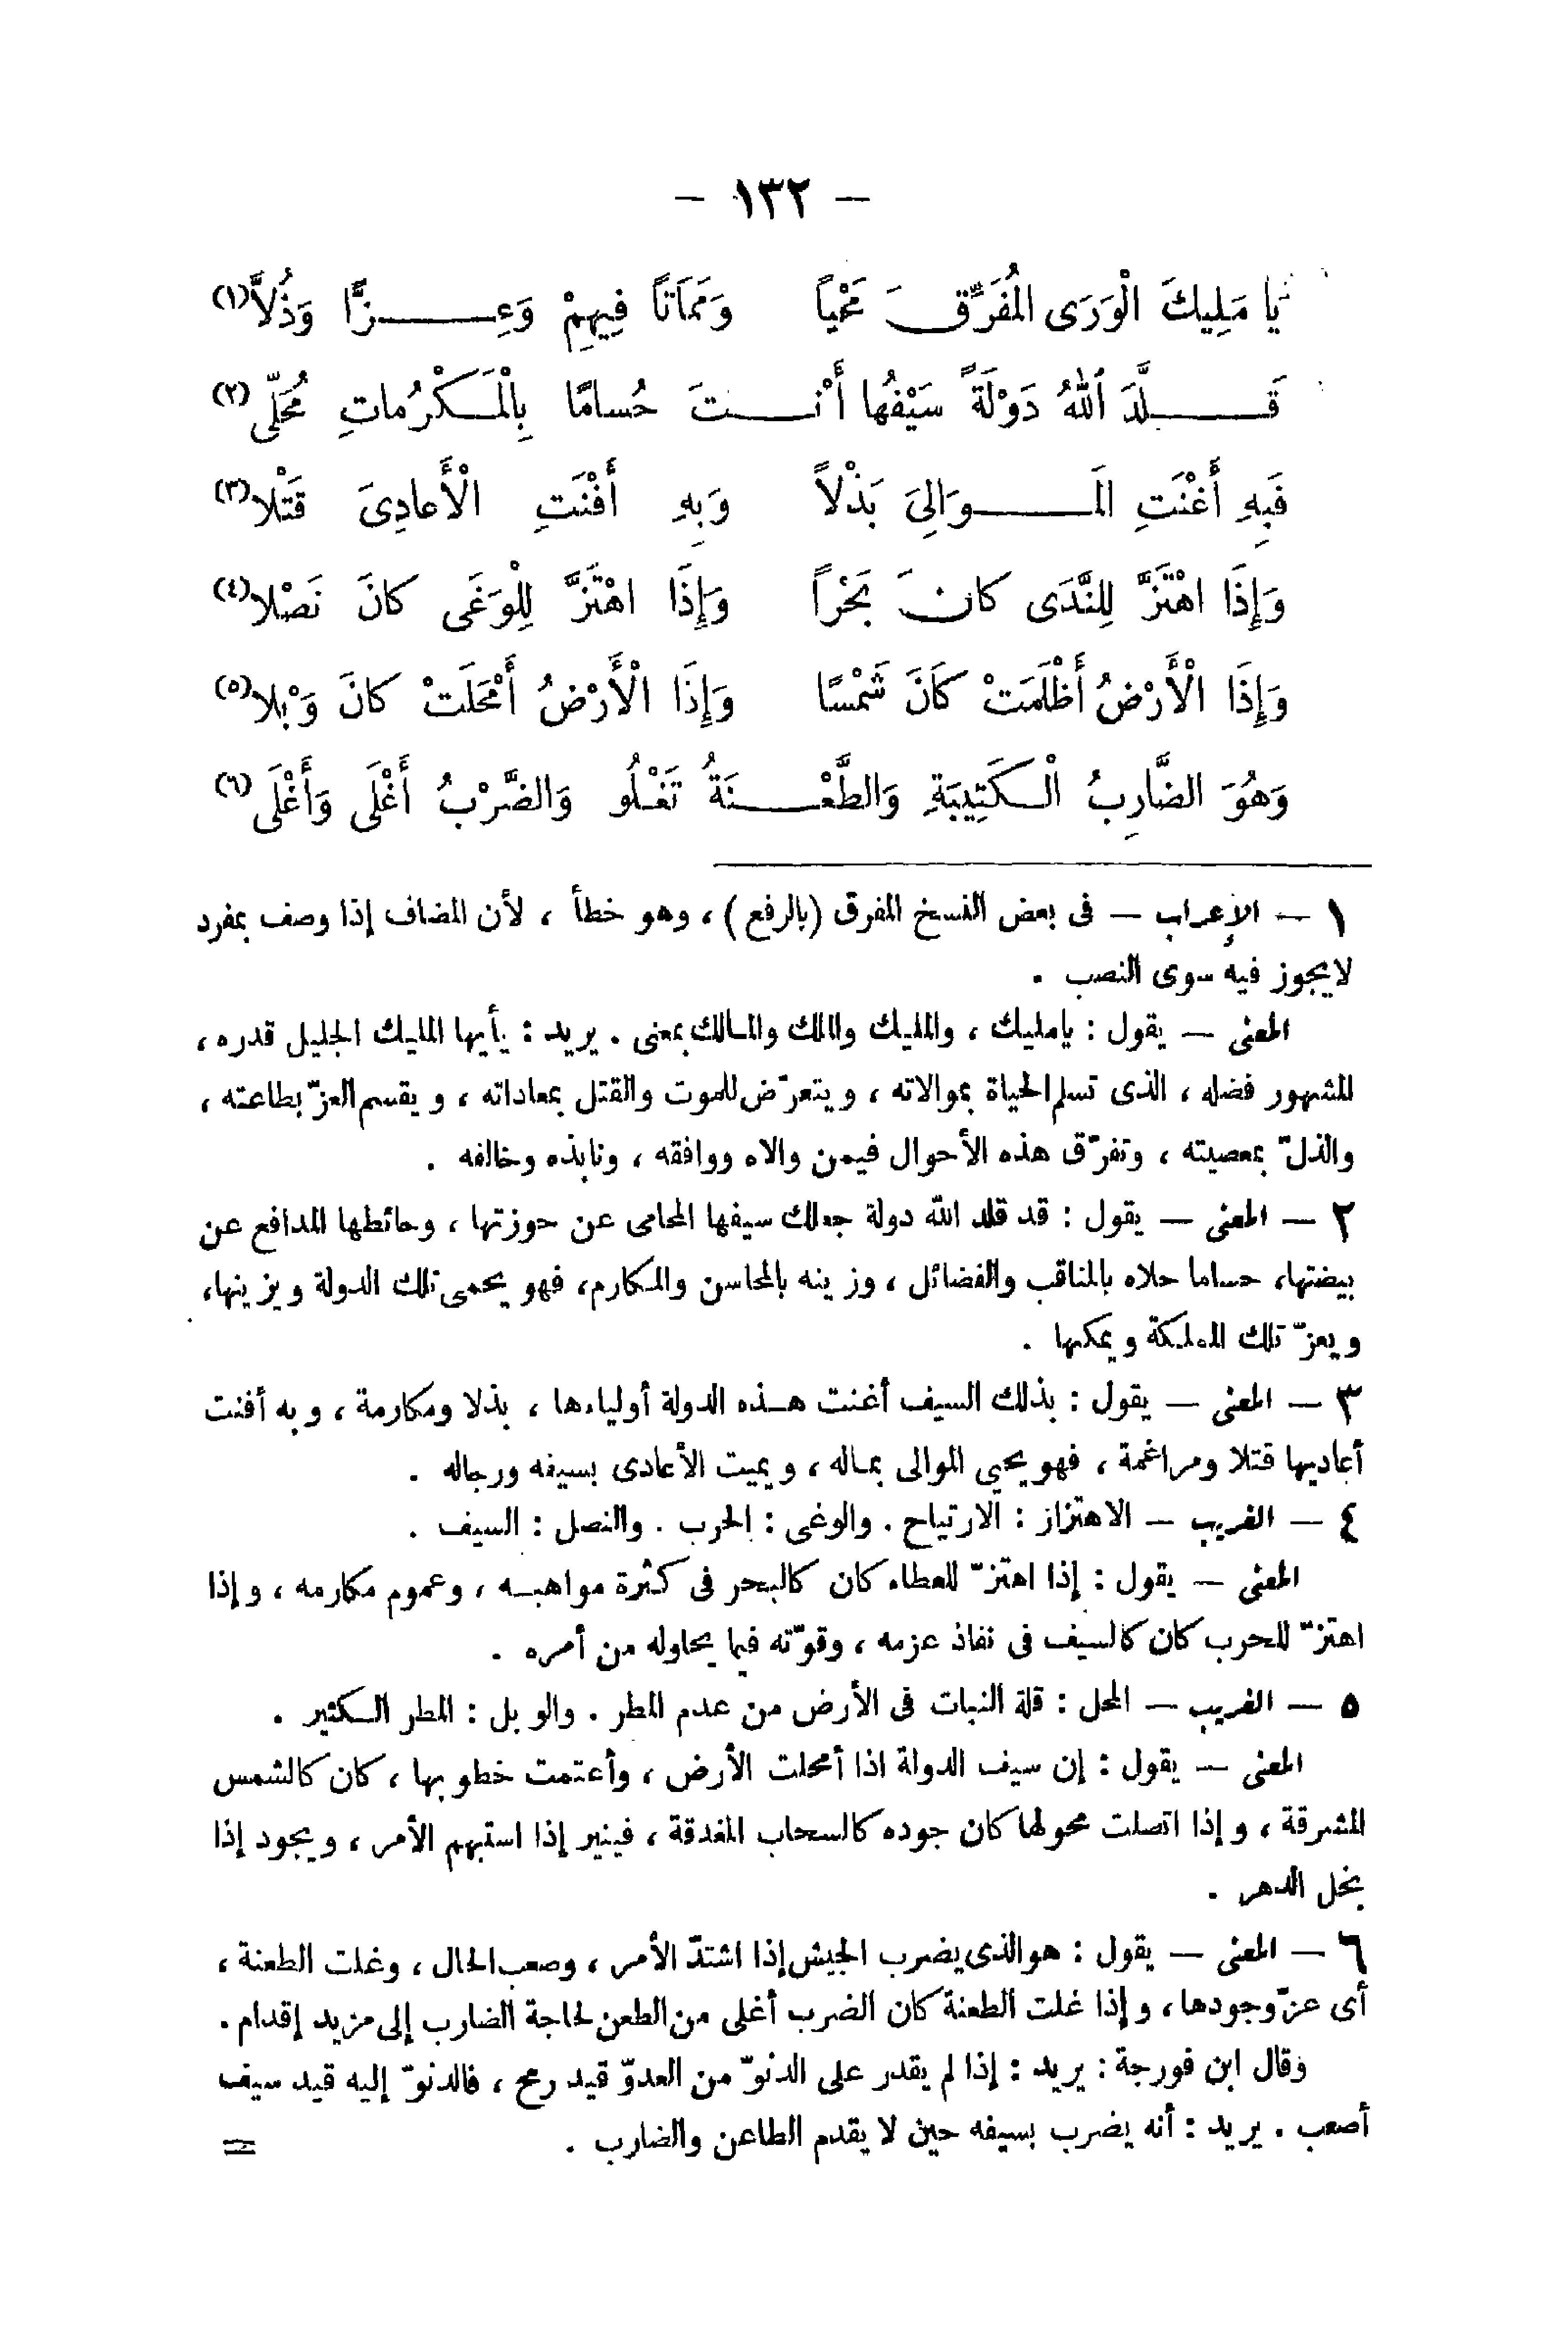 — ١٣٢ —
يَا مَلِيكَ الْوَرَى الْمُفَرِّقَ مَحْياً وَمَمَاتاً فِيهِمْ وَعِزًّا وَذُلاًّ(١)
قَلَّدَ اللهُ دَوْلَةً سَيْفُها أَنْتَ حُسامًا بِالْمَكْرُماتِ مُحَلّى(٢)
فَبِهِ أَغْنَتِ المَوَالِىَ بَذْلاً وَبِهِ أَفْنَتِ الْأَعادِىَ قَتْلا(٣)
وَإِذَا اهْتَزَّ لِلنَّدَى كانَ بَحْراً وَإِذَا اهْتَزَّ لِلْوَغَى كانَ نَصْلا(٤)
وَإِذَا الْأَرْضُ أَظْلَمَتْ كَانَ شَمْسًا وَإِذَا الْأَرْضُ أَمْحَلَتْ كانَ وَبْلا(٥)
وَهُوَ الضَّارِبُ الْكَتِيبَةِ وَالطَّعْنَةُ تَغْلُو وَالضَّرْبُ أَغْلَى وَأَغْلَى(٦)
١ — الإعراب — فى بعض النسخ المفرق (بالرفع) ، وهو خطأ ، لأن المضاف إذا وصف بمفرد
لايجوز فيه سوى النصب .
المعنى — يقول : يامليك ، والمليك والملك والمالك بمعنى . يريد : يأيها المليك الجليل قدره ،
المشهور فضله ، الذى تسلم الحياة بموالاته ، ويتعرّض للموت والقتل بمعاداته ، ويقسم العزّ بطاعته ،
والذلّ بمعصيته ، وتفرّق هذه الأحوال فيمن والاه ووافقه ، ونابذه وخالفه .
٢ — المعنى — يقول : قد قلد الله دولة جعلك سيفها المحامى عن حوزتها ، وحائطها المدافع عن
بيضتها، حساما حلاه بالمناقب والفضائل ، وزينه بالمحاسن والمكارم، فهو يحمى تلك الدولة ويزينها،
ويعزّ تلك المملكة ويمكنها .
٣ — المعنى — يقول : بذلك السيف أغنت هذه الدولة أولياءها ، بذلا ومكارمة ، وبه أفنت
أعاديها قتلا ومراغمة ، فهو يحيى الموالى بماله ، ويميت الأعادى بسيفه ورجاله .
٤ — الغريب — الاهتزاز : الارتياح . والوغى : الحرب . والنصل : السيف .
المعنى — يقول : إذا اهتزّ للعطاء كان كالبحر فى كثرة مواهبه ، وعموم مكارمه ، وإذا
اهتزّ للحرب كان كالسيف فى نفاذ عزمه ، وقوّته فيما يحاوله من أمره .
٥ — الغريب — المحل : قلة النبات فى الأرض من عدم المطر . والوبل : المطر الكثير .
المعنى — يقول : إن سيف الدولة اذا أمحلت الأرض ، وأعتمت خطوبها ، كان كالشمس
المشرقة ، وإذا اتصلت محولها كان جوده كالسحاب المغدقة ، فينير إذا استبهم الأمر ، ويجود إذا
بخل الدهر .
٦ — المعنى — يقول : هو الذى يضرب الجيش إذا اشتدّ الأمر ، وصعب الحال ، وغلت الطعنة ،
أى عزّ وجودها ، وإذا غلت الطعنة كان الضرب أغلى من الطعن لحاجة الضارب إلى مزيد إقدام .
وقال ابن فورجة : يريد : إذا لم يقدر على الدنوّ من العدوّ قيد رمح ، فالدنوّ إليه قيد سيف
أصعب . يريد : أنه يضرب بسيفه حين لا يقدم الطاعن والضارب . =